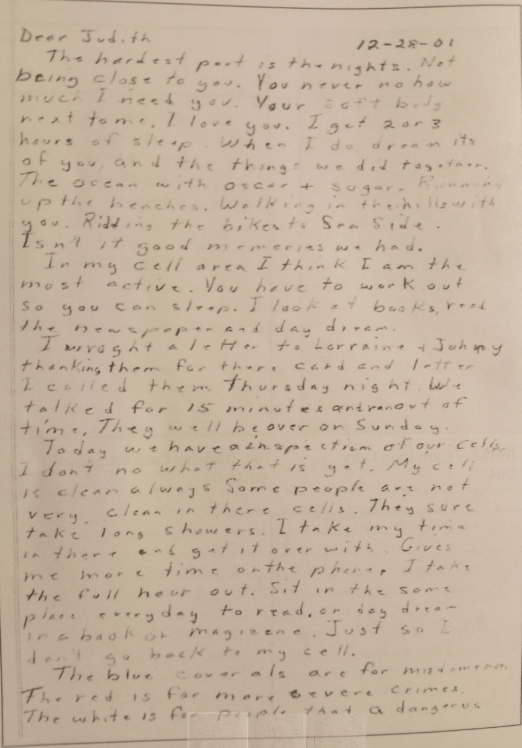 Dear Judith
12-28-01
The hardest part is the nights. Not
being close to you. You never no how
much I need you. Your soft body
next to me. I love you. I get 2 or 3
hours of sleep. When I do dream its
of you, and the things we did together.
The ocean with oscar + sugar. Running
up the beaches. Walking in the hills with
you. Ridding the bikes to Sea Side.
Isn't it good memories we had.
In my cell area I think I am the
most active. You have to work out
so you can sleep. I look at books, read
the newspaper and day dream.
I wroght a letter to Lorraine + Johnny
thanking them for there card and letter
I called them Thursday night. We
talked for 15 minutes and ran out of
time. They well be over on Sunday.
Today we have a inspection of our cells.
I don't no what that is yet. My cell
is clean always Some people are not
very clean in there cells. They sure
take long showers. I take my time
in there and get it over with. Gives
me more time on the phone, I take
the full hour out. Sit in the same
place everyday to read, or day dream
in a book or magizene. Just so I
don't go back to my cell.
The blue coverals are for misdomeren
The red is for more severe crimes.
The white is for people that a dangerus